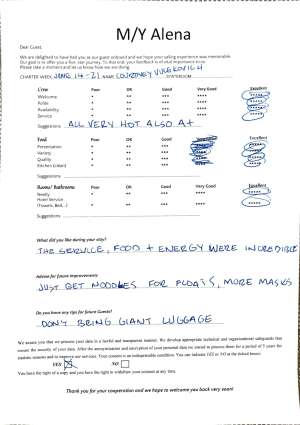 M/Y Alena
Dear Guest,
We are delighted to have had you as our guest onboard and we hope your sailing experience was memorable.
Our goal is to offer you a five star journey. To this end, your feedback is of vital importance to us.
Please take a moment and let us know how we are doing.
CHARTER WEEK: JUNE 14-21 NAME: COURTNEY STATEROOM
Crew Poor OK Good Very Good Excellent
Welcome * ** *** **** *****
Polite * ** *** **** *****
Availability * ** *** **** *****
Service * ** *** **** *****
Suggestions ALL VERY HOT ALSO A+
Food Poor OK Good Very Good Excellent
Presentation * ** *** **** *****
Variety * ** *** **** *****
Quality * ** *** **** *****
Kitchen (clean) * ** *** **** *****
Suggestions
Rooms/ Bathrooms Poor OK Good Very Good Excellent
Ready * ** *** **** *****
Hotel Service
(Towels, Bed...) * ** *** **** *****
Suggestions
What did you like during your stay?
THE SERVICE, FOOD + ENERGY WERE INCREDIBLE
Advise for future improvements
JUST GET NOODLES FOR FLOATS, MORE MASKS
Do you have any tips for future Guests?
DON'T BRING GIANT LUGGAGE
We assure you that we process your data in a lawful and transparent manner. We develop appropriate technical and organizational safeguards that
ensure the security of your data. After the
YES NO
You have the right of a copy and you have the right to withdraw your consent at any time.
Thank you for your cooperation and we hope to welcome you back very soon!